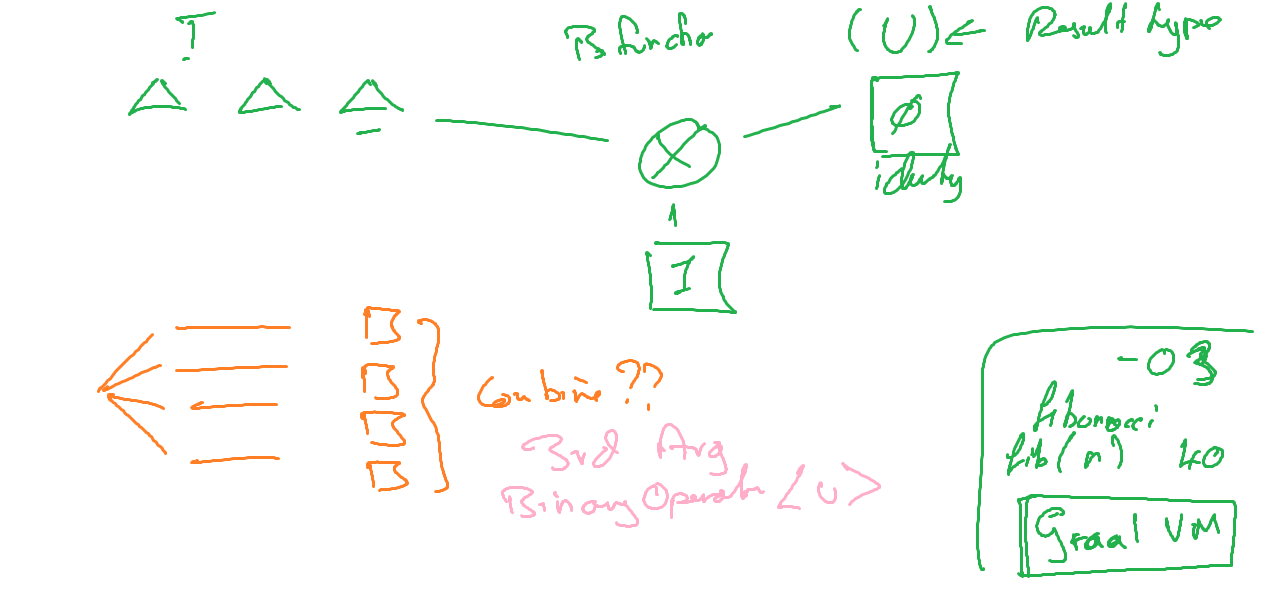 T
Bifunction
(U) ← Result type
Ø
identity
I
Combine ??
3rd Arg
BinaryOperator <U>
-O3
fibonacci
fib(n) 40
Graal VM